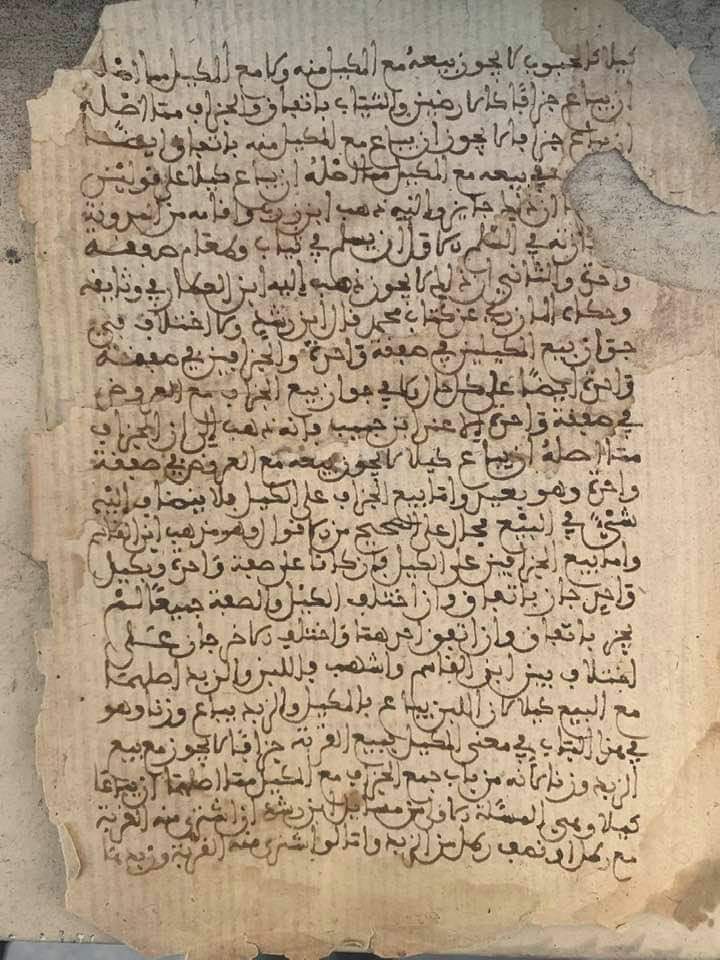 كيلا كالحبوب لا يجوز بيعه مع المكيل منه ولا مع المكيل مما اصله
ان يباع جزافا كالارضين والثياب باتفاق والجزاف مما اصله
ان يباع جزافا لا يجوز ان يباع مع المكيل منه باتفاق
في بيعه مع المكيل مما اصله ان يباع كيلا على قولين
ان ذلك جايز واليه ذهب ابن زرب واقامه من المدونة
في السلم الاول ان يسلم في ثياب وطعام صفقة
واحدة والثاني ان ذلك لا يجوز ذهب إليه ابن العطار في وثايقه
وحكاه عن كتاب محمد قال ابن رشد ولا اختلاف في
جواز بيع المكيلين في صفقة واحدة والجزافين في صفقة
واحدة ايضا على كل حال ولا في جواز بيع الجزاف مع العروض
في صفقة واحدة عند ابن حبيب فإنه ذهب إلى ان الجزاف
مما اصله ان يباع كيلا لا يجوز بيعه مع العروض في صفقة
واحدة وهو بعيد واما بيع الجزاف على الكيل فلا ينضاف اليه
شيء في البيع بحال على الصحيح من الاقوال وهو مذهب ابن القاسم
واما بيع الجزافين على الكيل فان كانا على صفة واحدة وبكيل
واحد جاز باتفاق وان اختلف الكيل والصفة جميعا لم
يجز باتفاق وان اتفق احدهما واختلف الاخر جاز على
اختلاف بين ابن القاسم واشهب فاللبن والزبد اصلهما
مع البيع كيلا لان اللبن يباع بالمكيل والزبد يباع وزنا وهو
في هذا الباب في معنى المكيل فبيع القربة جزافا لا يجوز مع بيع
الزبد وزنا لانه من باب جمع الجزاف مع المكيل مما اصلهما ان يباعا
كيلا وهي المسئلة الاولى من مسايل ابن رشد ان اشترى منه القربة
مع رطل او نصف رطل من الزبد واما لو اشترى منه القربة وزبدها